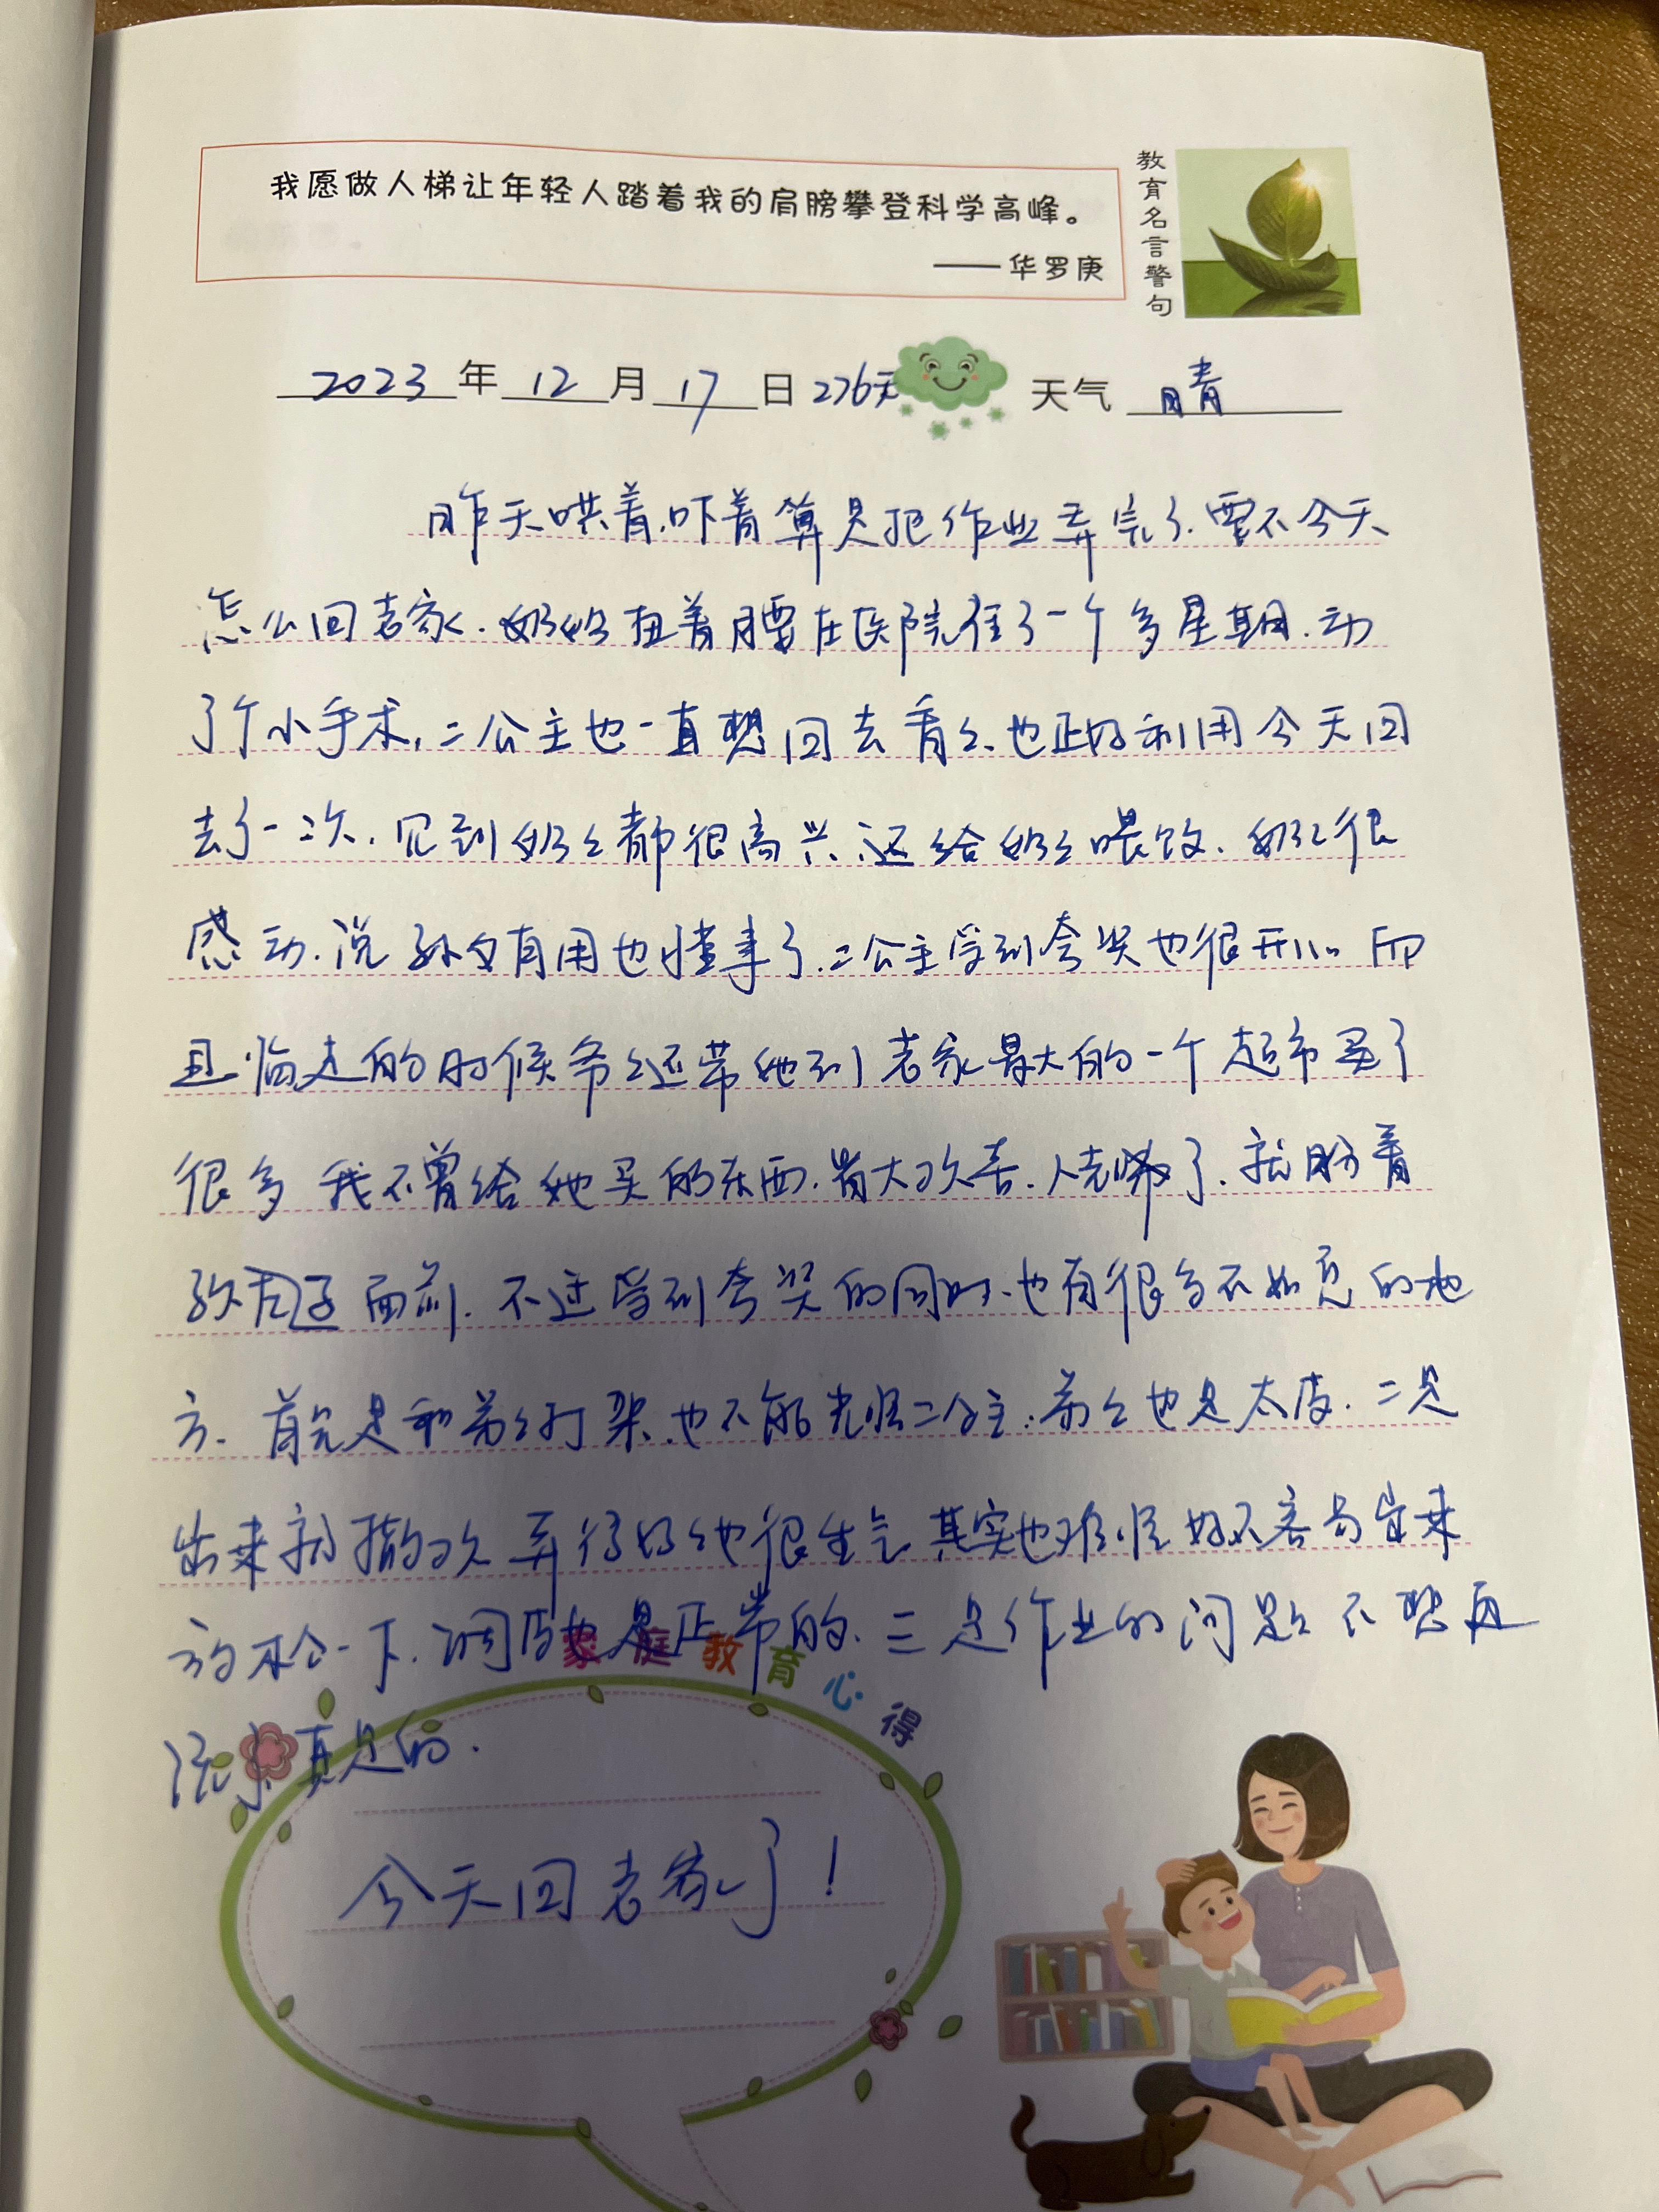 我愿做人梯让年轻人踏着我的肩膀攀登科学高峰。
——华罗庚
教育名言警句
2023年12月17日276天 天气 晴
昨天哄着.吓着算是把作业弄完了.要不今天
怎么回老家.奶奶扭着腰在医院住了一个多星期.动
了个小手术,二公主也一直想回去看々.也正好利用今天回
去了一次.见到奶々都很高兴.还给奶々喂饭.奶々很
感动.说孙女有用也懂事了.二公主受到夸奖也很开心而
且临走的时候爷々还带她到老家最大的一个超市买了
很多我不曾给她买的东西.皆大欢喜.人老了.就盼着
面前.不过受到夸奖的同时.也有很多不如意的地
方.首先是和弟々打架.也不能光怪二公主.弟々也是太皮.二是
出来就撒欢弄得妈々也很生气其实也难怪好不容易出来
放松一下.调皮也是正常的.三是作业的问题不想再
说了真是的.
家庭教育心得
今天回老家了!